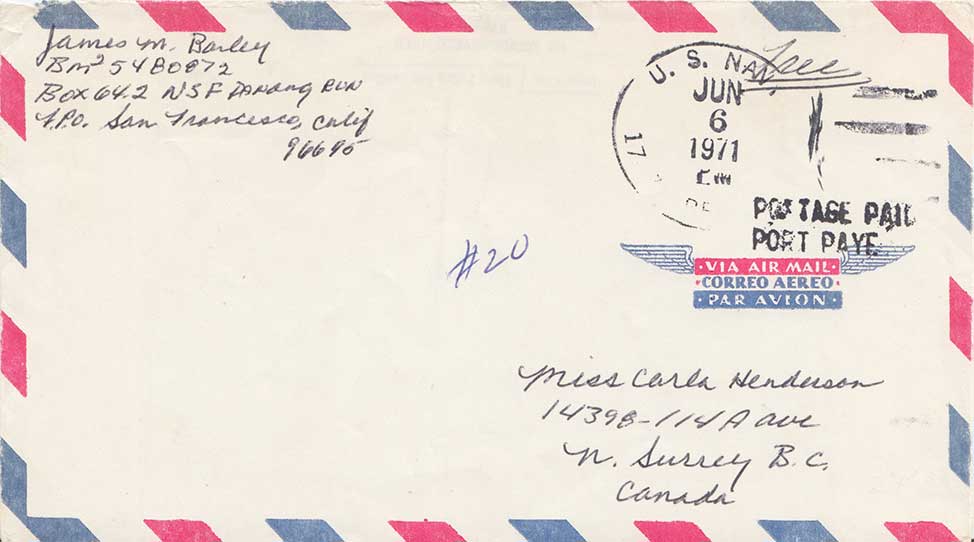 James M. Barley
BM2 5480872
Box 642 NSF Danang RVN
F.P.O. San Francisco, Calif
96695
Free
U. S. NAV
JUN
6
1971
17
POSTAGE PAID
PORT PAYE
#20
VIA AIR MAIL
CORREO AEREO
PAR AVION
Miss Carla Henderson
14398-114A ave
N. Surrey B.C.
Canada